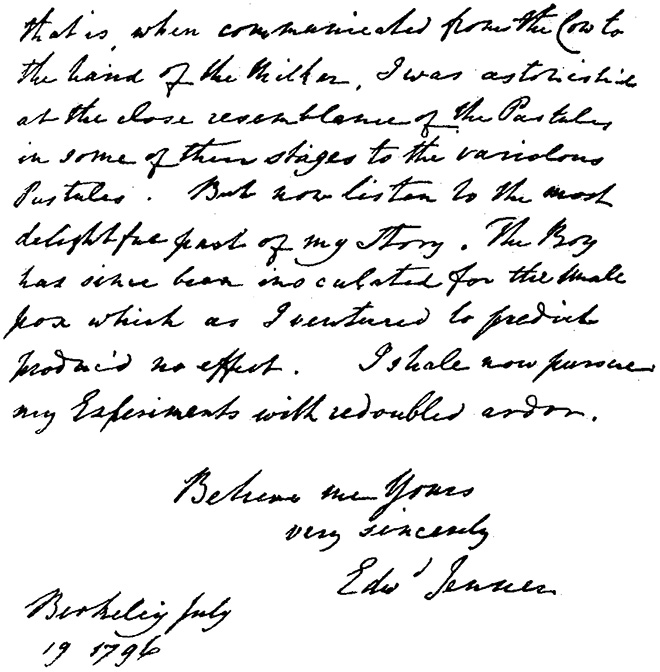 that is, when communicated from the Cow to
the hand of the Milker, I was astonish'd
at the close resemblance of the Pustules
in some of their stages to the variolous
Pustules. But now listen to the most
delightful part of my Story. The Boy
has since been inoculated for the small
pox which as I ventured to predict
produc'd no effect. I shall now pursue
my Experiments with redoubled ardor.
Believe me Yours
very sincerely
Edwd Jenner
Berkeley July
19 1796